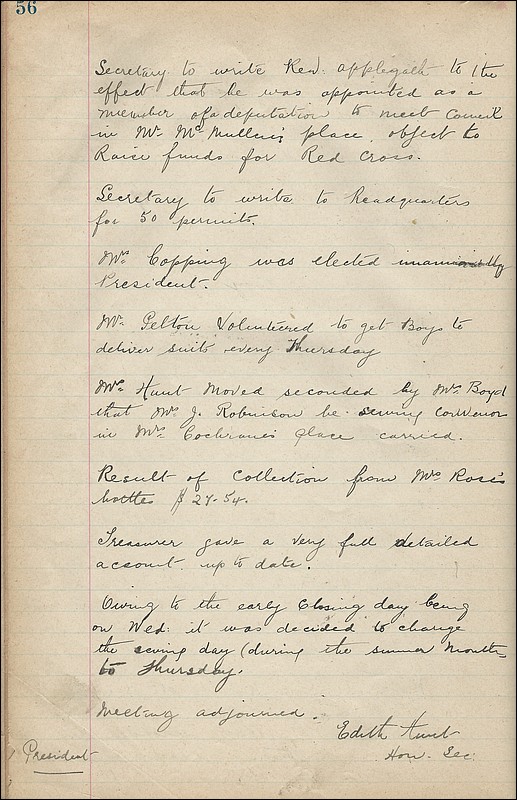 56
Secretary to write Rev. Applegath to the
effect that he was appointed as a
member of a deputation to meet Council
in Mr. McMullen's place, object to
Raise funds for Red Cross.
Secretary to write to Headquarters
for 50 permits.
Mrs Copping was elected
President.
Mr. Pelton Volunteered to get Boys to
deliver suits every Thursday
Mrs. Hunt moved seconded by Mrs. Boyd
that Mrs J. Robinson be sewing Convenor
in Mrs Cochrane's place carried.
Result of Collection from Mrs Rose's
bottles $ 27.54.
Treasurer gave a very full detailed
account up to date.
Owing to the early Closing day being
on Wed: it was decided to change
the sewing day (during the summer months
to Thursday.
Meeting adjourned.
Edith Hunt
Hon. Sec.
President